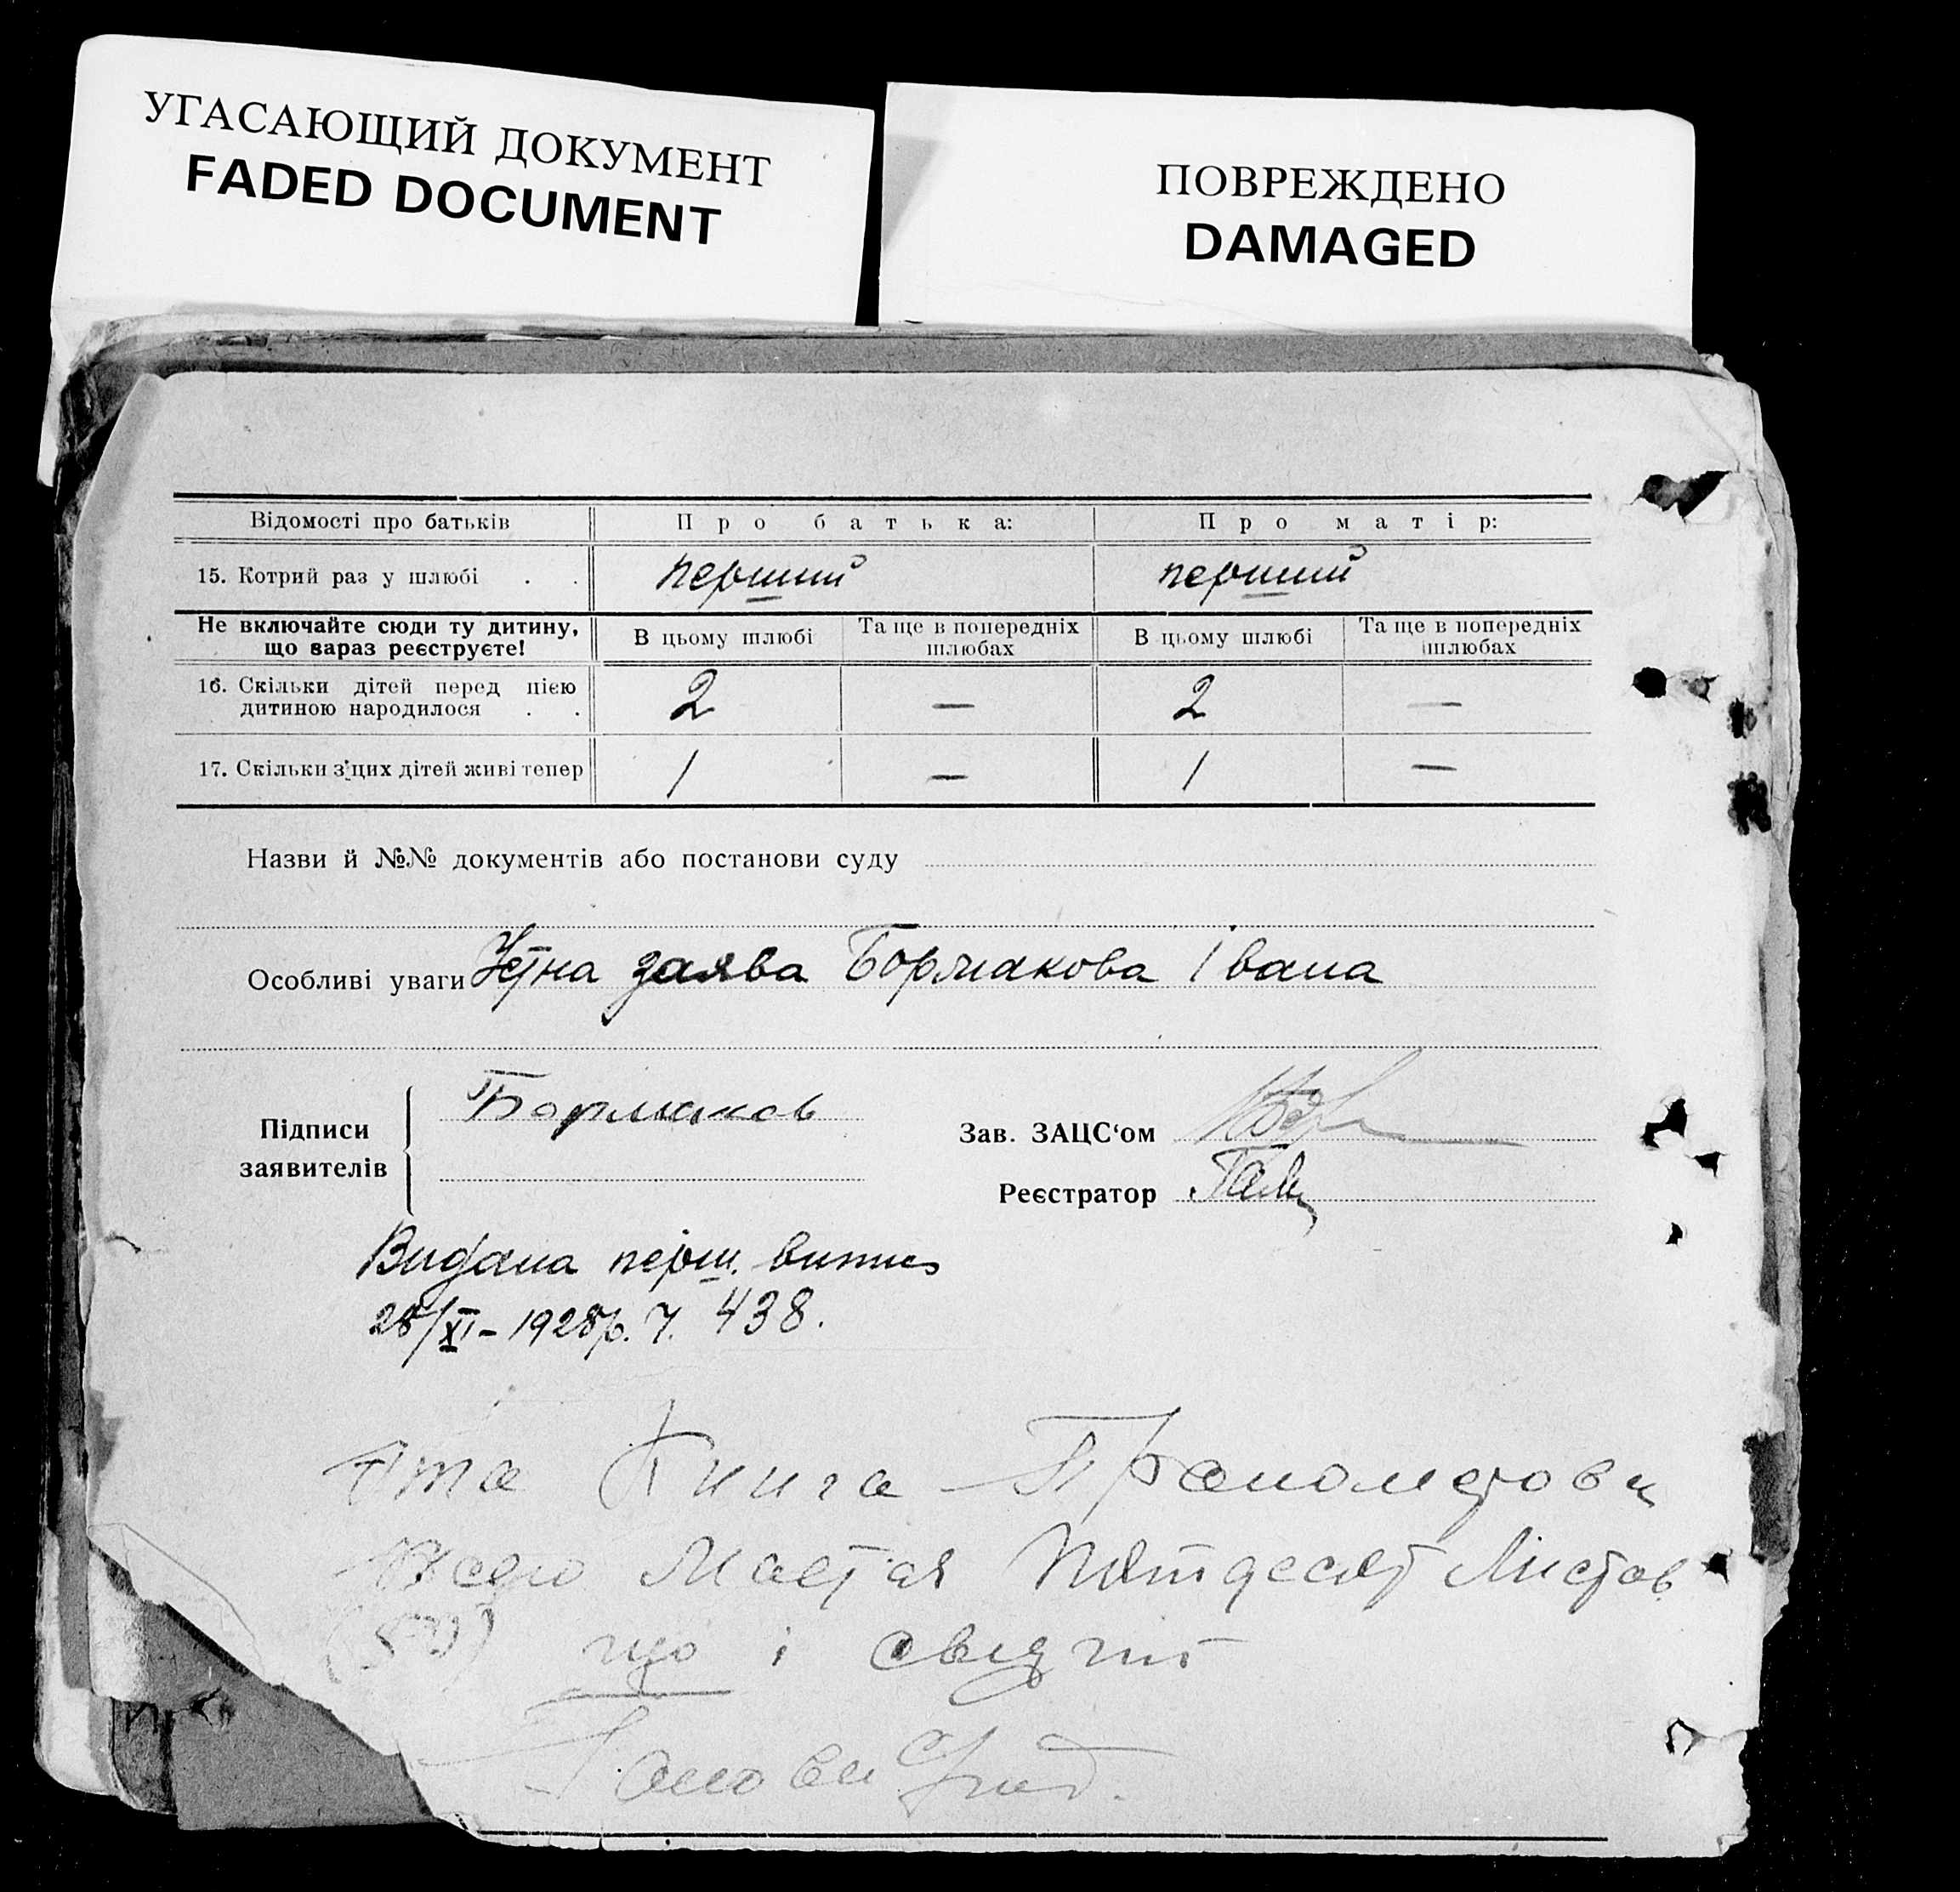 УГАСАЮЩИЙ ДОКУМЕНТ
FADED DOCUMENT
ПОВРЕЖДЕНО
DAMAGED
Відомості про батьків Про батька: Про матір:
15. Котрий раз у шлюбі . . перший перший
Не включайте сюди ту дитину, що вараз реєструєте! В цьому шлюбі Та ще в попередніх шлюбах В цьому шлюбі Та ще в попередніх шлюбах
16. Скільки дітей перед цією дитиною народилося . . 2 — 2 —
17. Скільки з цих дітей живі тепер 1 — 1 —
Назви й №№ документів або постанови суду
Особливі уваги Устна заява Бормакова Івана
Підписи заявителів Бормаков
Зав. ЗАЦС‘ом
Реєстратор
Видана перш. випис
28/XI – 1928р. Ч. 438.
Ета Книга
Пятдесят Листов
(50) що і